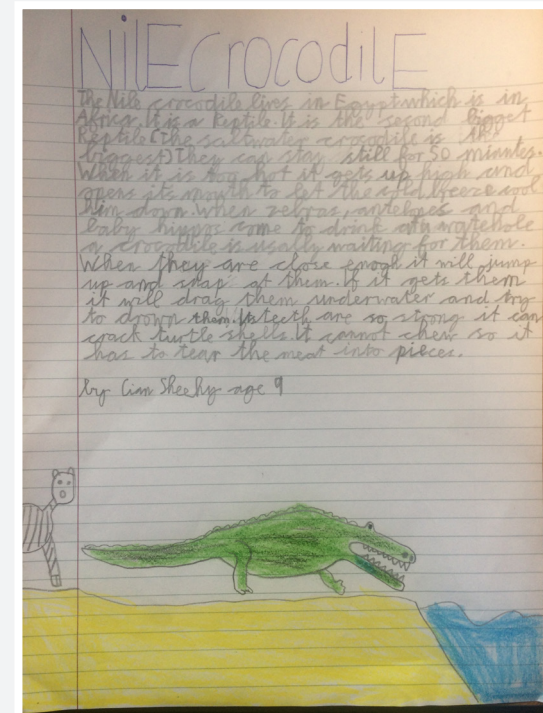 NilE CrocodilE
The Nile crocodile lives in Egypt which is in
Africa. It is a Reptile. It is the second Bigget
Reptile (the saltwater crocodile is the
biggest) They can stay still for 50 miantes.
When it is too hot it gets up high and
opens its mouth to let the cold breeze cool
him down. when zebras, antelopes and
baby hippos come to drink at a watehole
a crocodile is usally waiting for them.
When they are close enogh it will jump
up and snap at them. If it gets them
it will drag them underwater and try
to drown them. Its teeth are so strong it can
crack turtle shells. It cannot chew so it
has to tear the meat into pieces.
by Cian Sheehy age 9